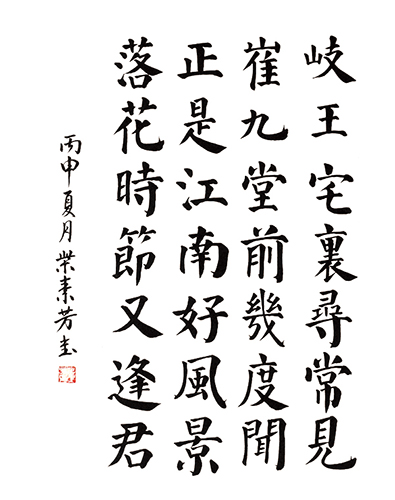 岐王宅裏尋常見
崔九堂前幾度聞
正是江南好風景
落花時節又逢君
丙申夏月柴素芳書